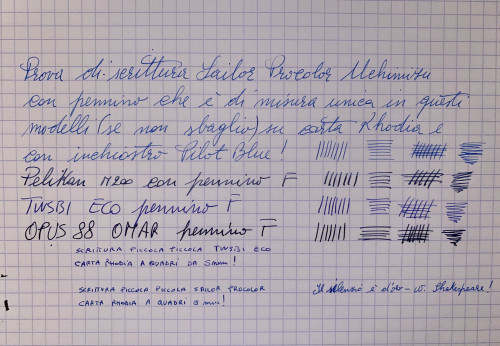 Prova di scrittura Sailor Procolor Uchimizu
con pennino che è di misura unica in questi
modelli (se non sbaglio) su carta Rhodia e
con inchiostro Pilot Blue!
Pelikan M200 con pennino F
TWSBI ECO pennino F
OPUS 88 OMAR pennino F
SCRITTURA PICCOLA PICCOLA TWSBI ECO
CARTA RHODIA A QUADRI DA 5mm!
SCRITTURA PICCOLA PICCOLA SAILOR PROCOLOR
CARTA RHODIA A QUADRI 5 mm!
Il silenzio è d'oro - W. Shakespeare!